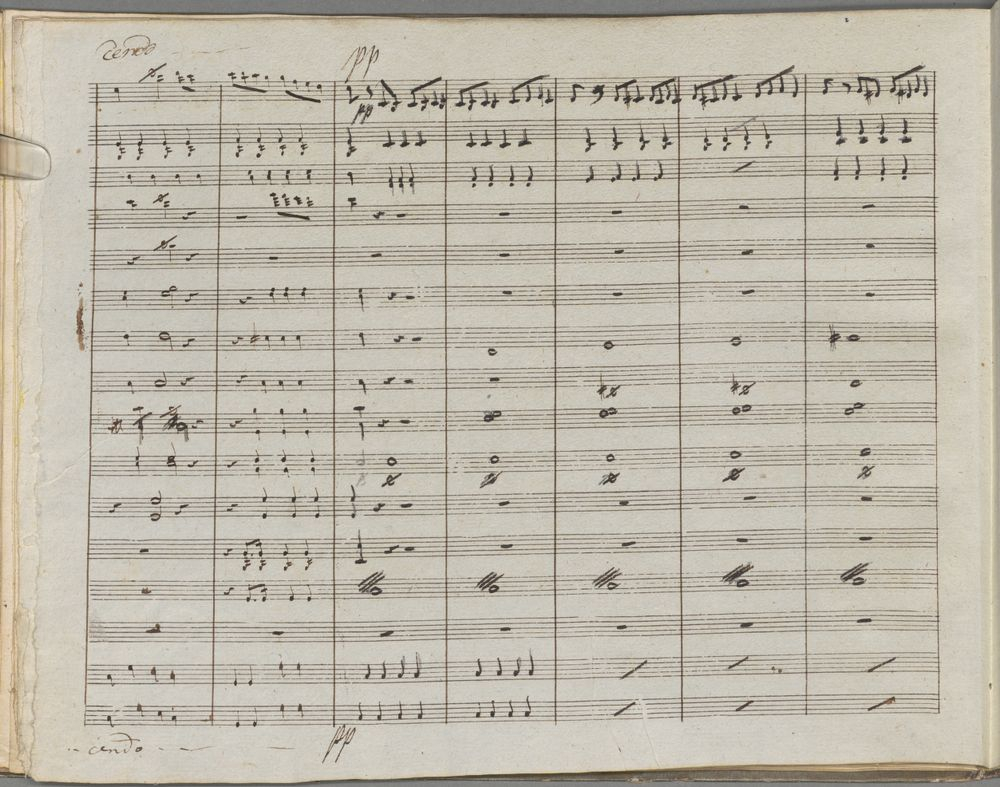 cendo
pp
pp
cendo
pp